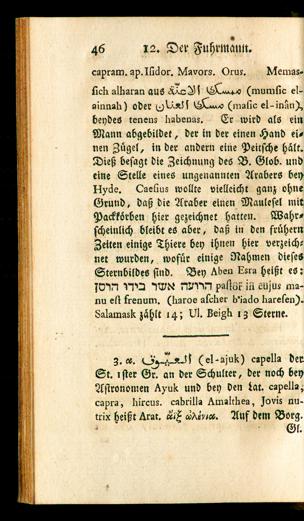 46 12. Der Fuhrmann.
capram. ap. Isidor. Mavors. Orus. Memas-
sich alharan aus ممسك الاعنّة (mumsic el-
ainnah) oder مسك العنان (masic el-inân),
beydes tenens habenas. Er wird als ein
Mann abgebildet, der in der einen Hand ei-
nen Zügel, in der andern eine Peitsche hält.
Dieß besagt die Zeichnung des B. Glob. und
eine Stelle eines ungenannten Arabers bey
Hyde. Caesius wollte vielleicht ganz ohne
Grund, daß die Araber einen Maulesel mit
Packkörben hier gezeichnet hatten. Wahr-
scheinlich bleibt es aber, daß in den frühern
Zeiten einige Thiere bey ihnen hier verzeich-
net wurden, wofür einige Nahmen dieses
Sternbildes sind. Bey Aben Esra heißt es:
הרועה אשר בידו הרסן pastor in cujus ma-
nu est frenum. (haroe ascher b'iado haresen).
Salamask zählt 14; Ul. Beigh 13 Sterne.
3. α. العيّوق (el-ajuk) capella der
St. 1ster Gr. an der Schulter, der noch bey
Astronomen Ayuk und bey den Lat. capella,
capra, hircus. cabrilla Amalthea, Jovis nu-
trix heißt Arat. ἀὶξ ὠλενια. Auf dem Borg.
Gl.